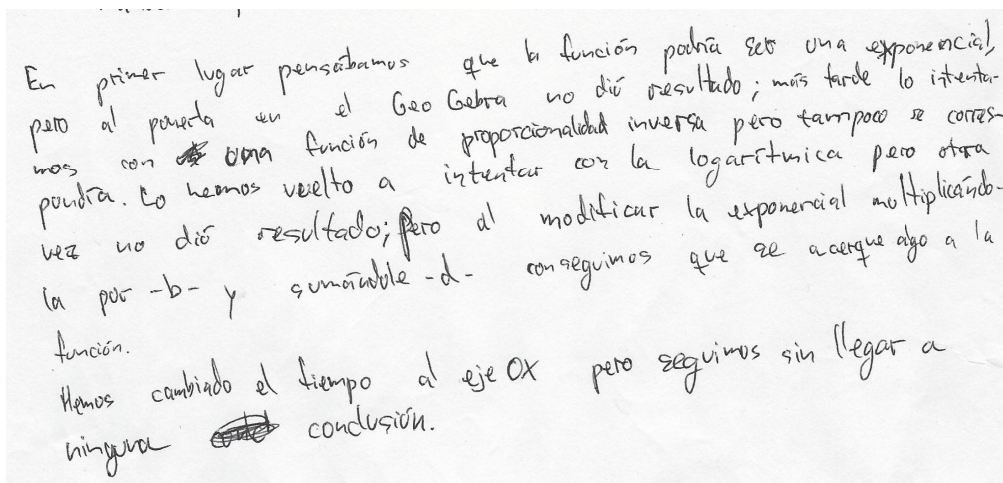 En primer lugar pensábamos que la función podría ser una exponencial,
pero al ponerla en el Geo Gebra no dió resultado; más tarde lo intenta-
mos con una función de proporcionalidad inversa pero tampoco se corres-
pondía. Lo hemos vuelto a intentar con la logarítmica pero otra
vez no dió resultado; Pero al modificar la exponencial multiplicándo-
la por -b- y sumándole -d- conseguimos que se acerque algo a la
función.
Hemos cambiado el tiempo al eje OX pero seguimos sin llegar a
ninguna conclusión.